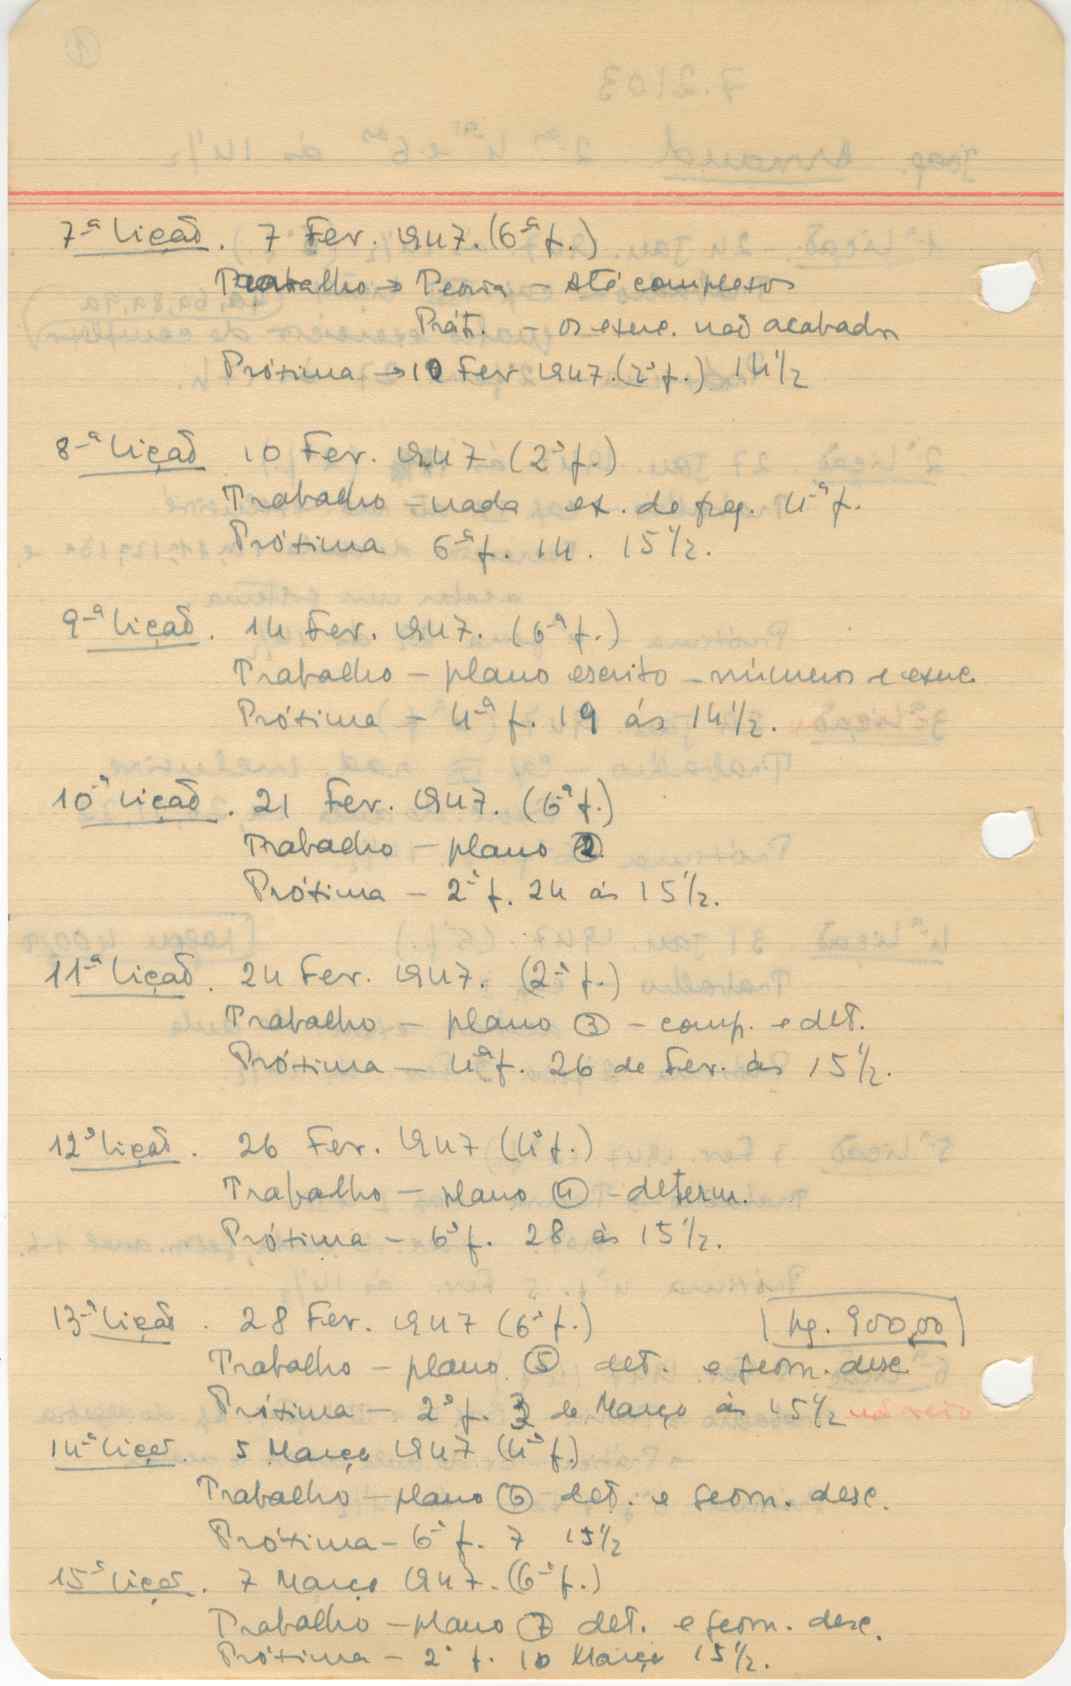 7-ª Lição. 7 Fev. 1947. (6-ª f.)
Trabalho → Teoria - Até complexos
Prát. - os exerc. não acabados
Próxima → 10 Fev 1947. (2ª f.) 14 1/2
8-ª Lição 10 Fev. 1947 (2ª f.)
Trabalho - nada ex. de freq. 4-ª f.
Próxima 6-ª f. 14. 15 1/2.
9-ª Lição. 14 Fev. 1947. (6-ª f.)
Trabalho - plano escrito - números e exerc.
Próxima - 4-ª f. 19 ás 14 1/2.
10-ª Lição. 21 Fev. 1947. (6-ª f.)
Trabalho - plano ②
Próxima - 2-ª f. 24 ás 15 1/2.
11-ª Lição. 24 Fev. 1947. (2-ª f.)
Trabalho - plano ③ - comp. e det.
Próxima - 4ª f. 26 de Fev. ás 15 1/2.
12ª Lição. 26 Fev. 1947 (4ª f.)
Trabalho - plano ④ - determ.
Próxima - 6ª f. 28 ás 15 1/2.
13-ª Lição. 28 Fev. 1947 (6-ª f.) pg. 900,00
Trabalho - plano ⑤ det. e geom. desc.
Próxima - 2ª f. 3 de Março ás 15 1/2
14ª Lição. 5 Março 1947 (4-ª f.)
Trabalho - plano ⑥ det. e geom. desc.
Próxima - 6-ª f. 7 15 1/2
15ª Lição. 7 Março 1947. (6-ª f.)
Trabalho - plano ⑦ det. e geom. desc.
Próxima - 2ª f. 10 Março 15 1/2.